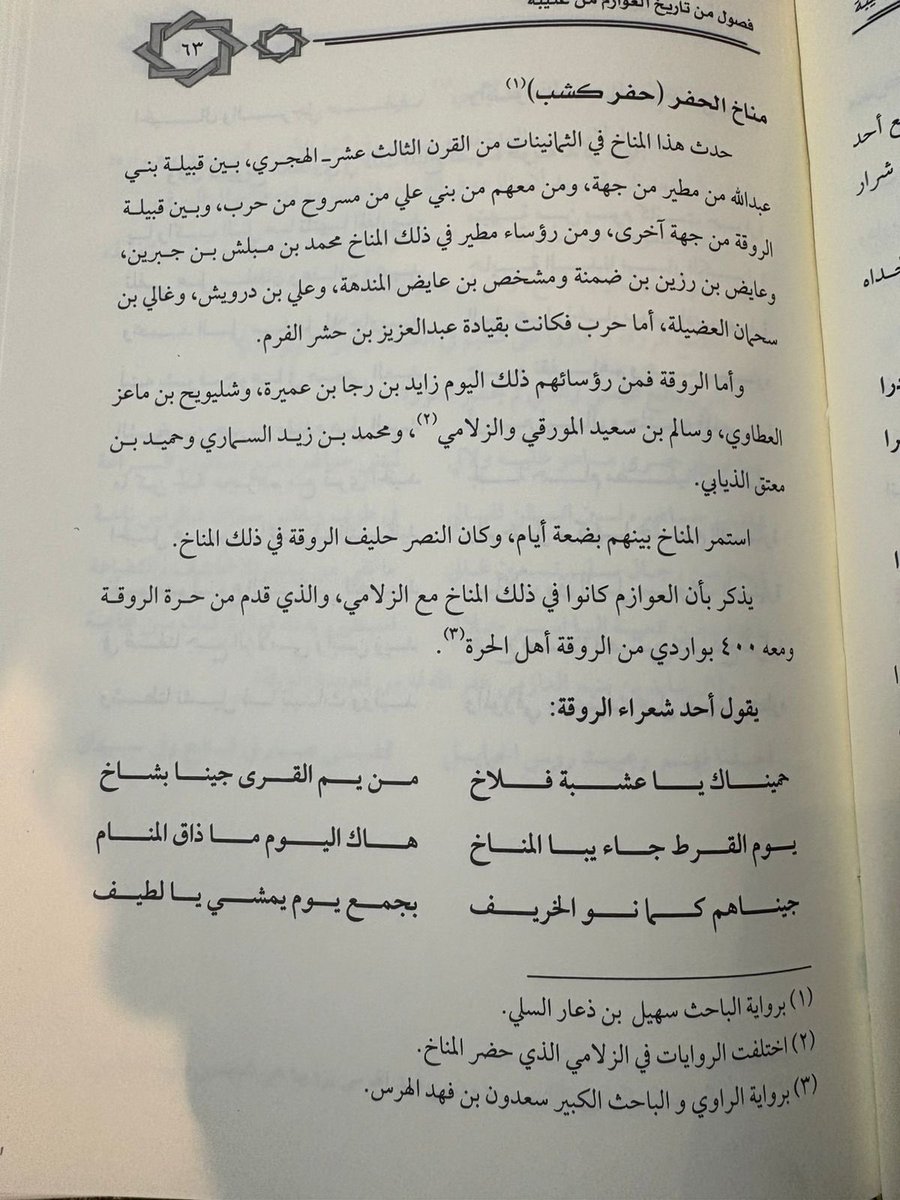 فصول من تاريخ العوازم من عتيبة
٦٣
مناخ الحفر (حفر كشب)(١)
حدث هذا المناخ في الثمانينات من القرن الثالث عشر الهجري، بين قبيلة بني
عبدالله من مطير من جهة، ومن معهم من بني علي من مسروح من حرب، وبين قبيلة
الروقة من جهة آخرى، ومن رؤساء مطير في ذلك المناخ محمد بن مبلش بن جبرين،
وعايض بن رزين بن ضمنة ومشخص بن عايض المندهة، وعلي بن درويش، وغالي بن
سحمان العضيلة، أما حرب فكانت بقيادة عبدالعزيز بن حشر الفرم.
وأما الروقة فمن رؤسائهم ذلك اليوم زايد بن رجا بن عميرة، وشليويح بن ماعز
العطاوي، وسالم بن سعيد المورقي والزلامي(٢)، ومحمد بن زيد السماري وحميد بن
معتق الذيابي.
استمر المناخ بينهم بضعة أيام، وكان النصر حليف الروقة في ذلك المناخ.
يذكر بأن العوازم كانوا في ذلك المناخ مع الزلامي، والذي قدم من حرة الروقة
ومعه ٤٠٠ بواردي من الروقة أهل الحرة(٣).
يقول أحد شعراء الروقة:
حميناك يا عشبة فلاخ من يم القرى جينا بشاخ
يوم القرط جاء يبا المناخ هاك اليوم ما ذاق المنام
جيناهم كما نو الخريف بجمع يوم يمشي يا لطيف
(١) برواية الباحث سهيل بن ذعار السلي.
(٢) اختلفت الروايات في الزلامي الذي حضر المناخ.
(٣) برواية الراوي و الباحث الكبير سعدون بن فهد الهرس.
ع أحد
شرار